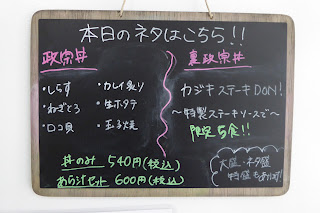 本日のネタはこちら!!
政宗丼
・しらす
・ねぎとろ
・ロコ貝
・カレイ炙り
・生ホタテ
・玉子焼
丼のみ 540円(税込)
あら汁セット 600円(税込)
裏政宗丼
カジキステーキDON!
〜特製ステーキソースで〜
限定5食!!
大盛・ネタ盛
特盛もあります!